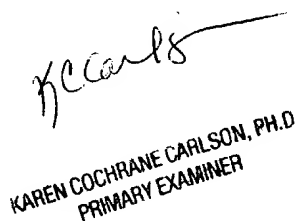 KC Carlson
KAREN COCHRANE CARLSON, PH.D
PRIMARY EXAMINER